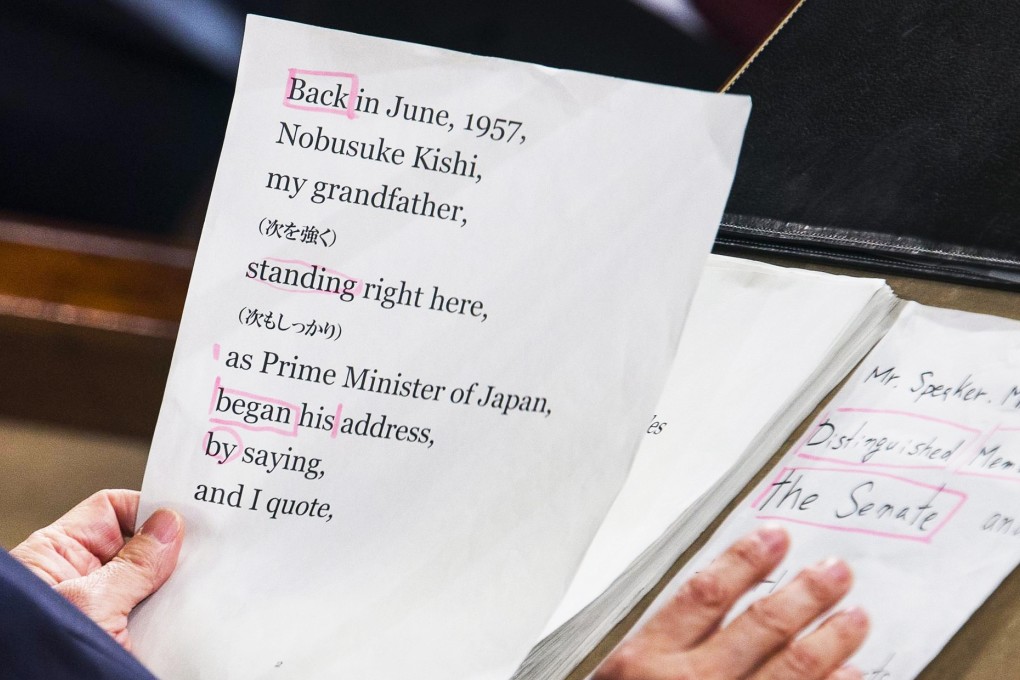 Back in June, 1957,
Nobusuke Kishi,
my grandfather,
(次を強く)
standing right here,
(次もしっかり)
as Prime Minister of Japan,
began his address,
by saying,
and I quote,
2
es
Mr. Speaker. M
Distinguished Mem
the Senate and